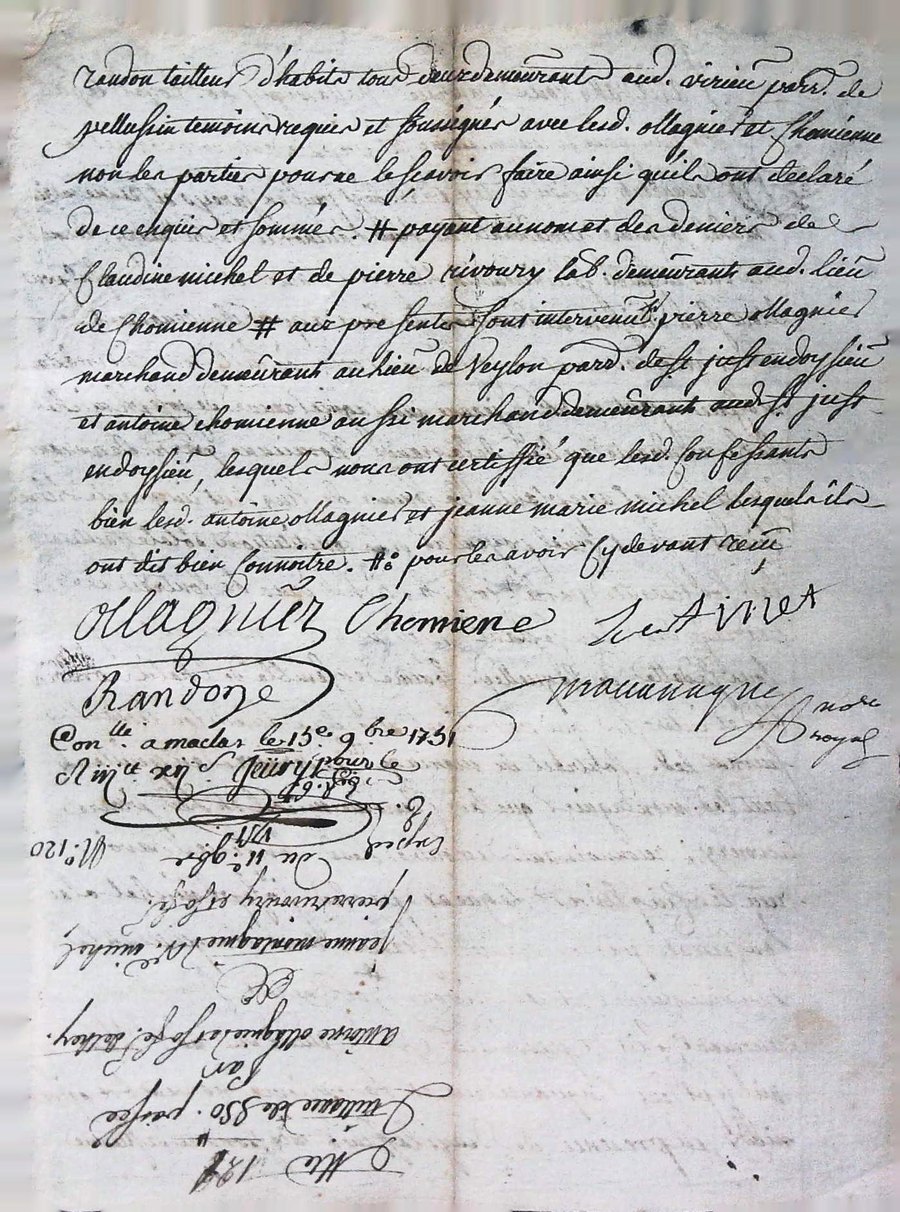 randon tailleur d'habits tous deux demeurants aud. virieu parr. de
pellussin temoins requis et soussignés avec lesd. ollagnier et Chomienne
non les parties pour ne le sçavoir faire ainsi quils ont declaré
de ce enquis et sommés. # payant au nom et des deniers de
Claudine michel et de pierre rivoury lab. demeurants aud. lieu
de Chomienne # aux presentes sont intervenus pierre ollagnier
marchand demeurants au lieu de Veylon parr. de st just endoysieu
et antoine chomienne aussi marchand demeurants aud. st just
endoysieu, lesquels nous ont certiffié que lesd. Confessants
bien lesd. antoine ollagnier et jeanne marie michel lesquels ils
ont dit bien Connoitre. #: pour les avoir Cy devant reçu
ollagnier Chomiene
Randone
nore
royal
Conlle a maclas le 15e 9bre 1751
pour le
Exped
No. 120
du 11e 9bre
1751
pierre rivoury et sa fe.
jeanne montagnier Vve michel
Et
antoine ollagnier et sa fe.
Par
Quittance de 880 passée
121